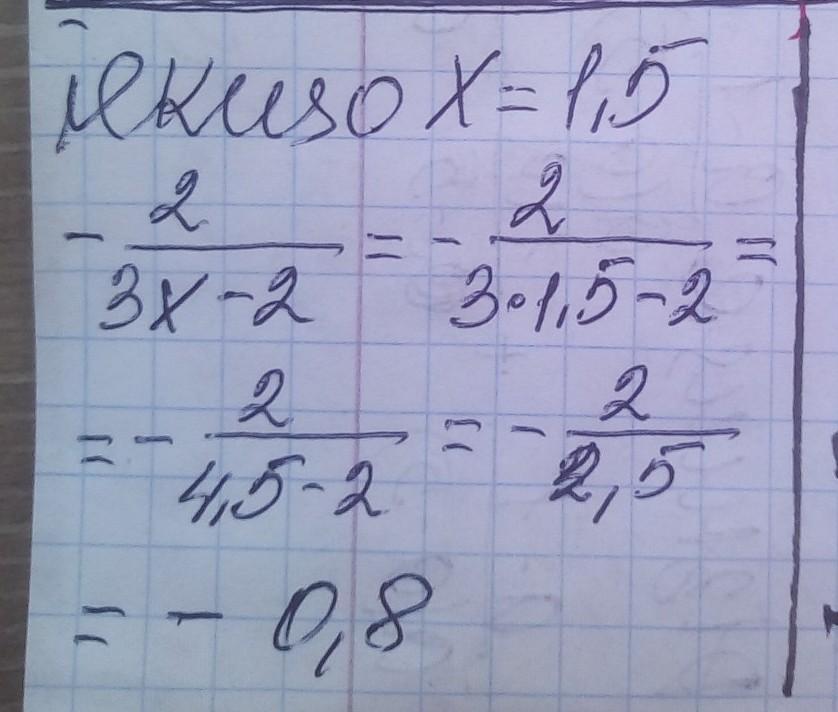 Якщо x = 1,5
- 2/(3x - 2) = - 2/(3·1,5 - 2) =
= - 2/(4,5 - 2) = - 2/2,5
= - 0,8